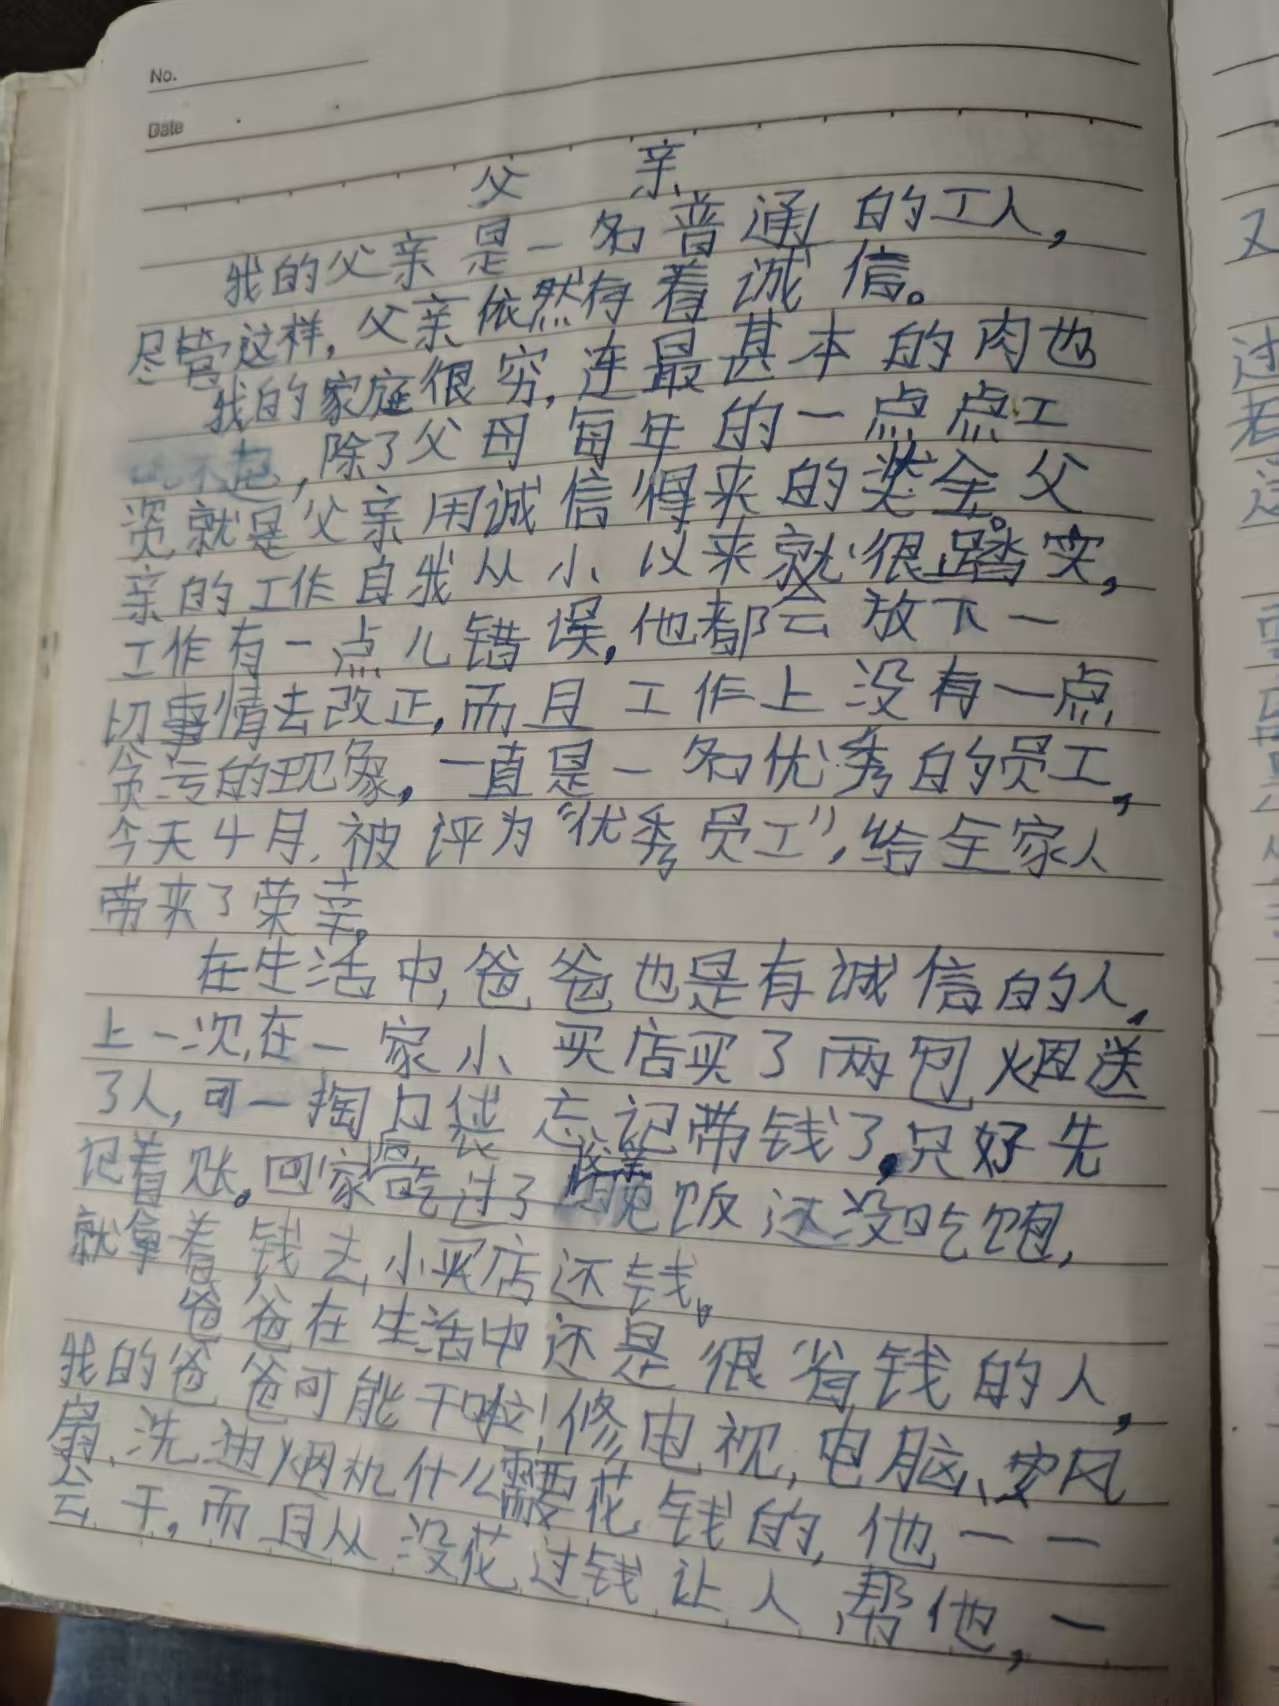 No.
Date
父 亲
我的父亲是一名普通的工人,
尽管这样,父亲依然存着诚信。
我的家庭很穷,连最甚本的肉也
吃不起,除了父母每年的一点点工
资就是父亲用诚信得来的奖金。父
亲的工作自我从小以来就很踏实,
工作有一点儿错误,他都会放下一
切事情去改正,而且工作上没有一点
贪污的现象,一直是一名优秀的员工,
今天4月,被评为“优秀员工”,给全家人
带来了荣幸。
在生活中,爸爸也是有诚信的人,
上一次,在一家小买店买了两包烟送
了人,可一掏口袋忘记带钱了,只好先
记着账。回家后吃过了晚饭还没吃饱,
就拿着钱去小买店还钱。
爸爸在生活中还是很省钱的人,
我的爸爸可能干啦!修电视,电脑、安风
扇、洗油烟机什么需要花钱的,他一一
会干,而且从没花过钱让人帮他,一
又
过
着